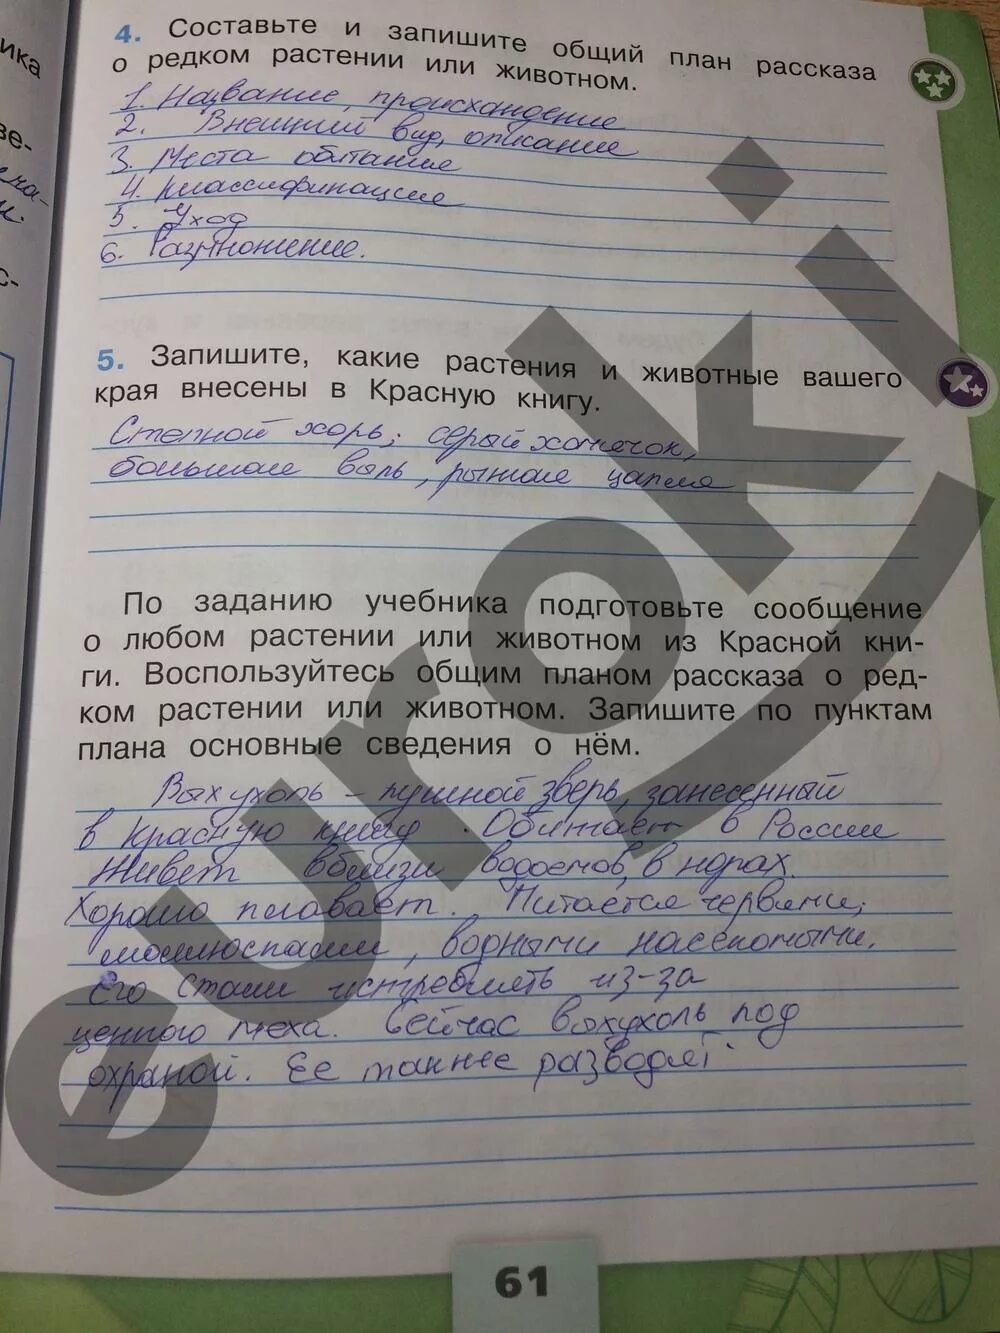 4. Составьте и запишите общий план рассказа
о редком растении или животном.
1. Название, происхождение
2. Внешний вид, описание
3. Места обитание
4. Классификацие
5. Уход
6. Размножение.
5. Запишите, какие растения и животные вашего
края внесены в Красную книгу.
Степной хорь, серый хомячок,
большая выпь, рыжая цапля
По заданию учебника подготовьте сообщение
о любом растении или животном из Красной кни-
ги. Воспользуйтесь общим планом рассказа о ред-
ком растении или животном. Запишите по пунктам
плана основные сведения о нём.
Выхухоль – пушной зверь, занесенный
в красную книгу. Обитает в России
Живет вблизи водоемов, в норах.
Хорошо плавает. Питается червями,
моллюсками, водными насекомыми.
Его стали истреблять из-за
ценного меха. Сейчас выхухоль под
охраной. Ее также разводят.
61
ика
ве-
с-
euroki